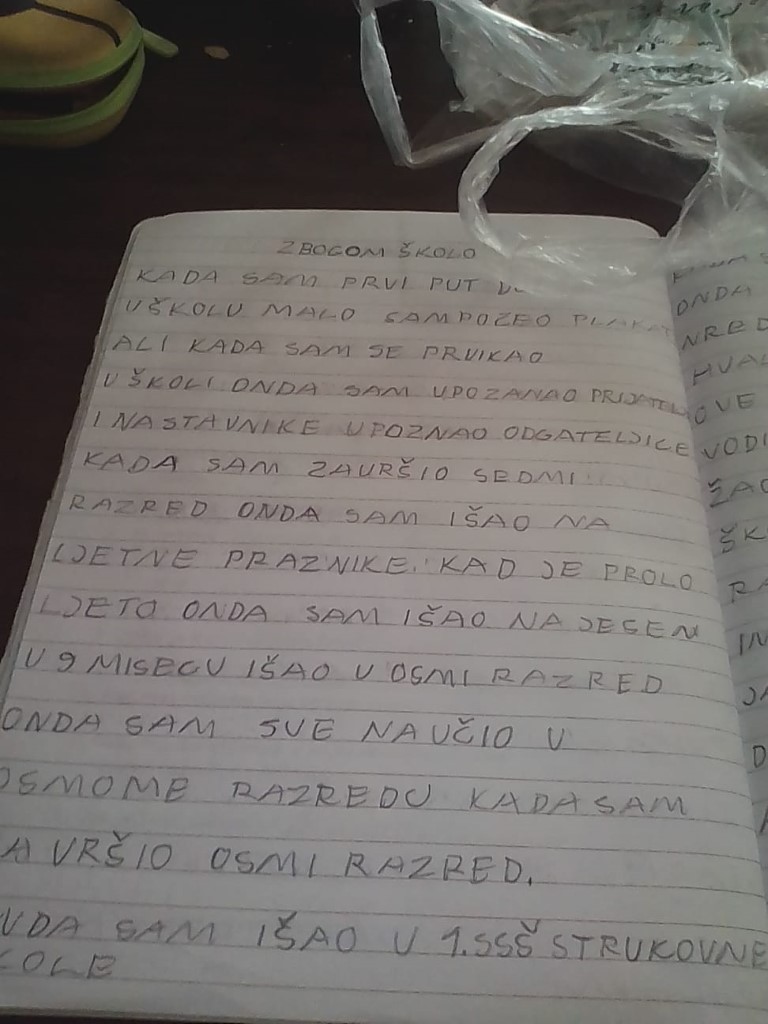 ZBOGOM ŠKOLO
KADA SAM PRVI PUT
U ŠKOLU MALO SAMPOZEO
ALI KADA SAM SE PRVIKAO
U ŠKOLI ONDA SAM UPOZANAO PRIJATELJ
I NASTAVNIKE UPOZNAO ODGATELJICE
KADA SAM ZAVRŠIO SEDMI
RAZRED ONDA SAM IŠAO NA
LJETNE PRAZNIKE. KAD JE PROLO
LJETO ONDA SAM IŠAO NA JESEN
U 9 MISECU IŠAO U OSMI RAZRED
ONDA SAM SVE NAUČIO U
OSMOME RAZREDU KADA SAM
AVRŠIO OSMI RAZRED.
NDA SAM IŠAO U 1.SSŠ STRUKOVNE
KOLE
ONDA